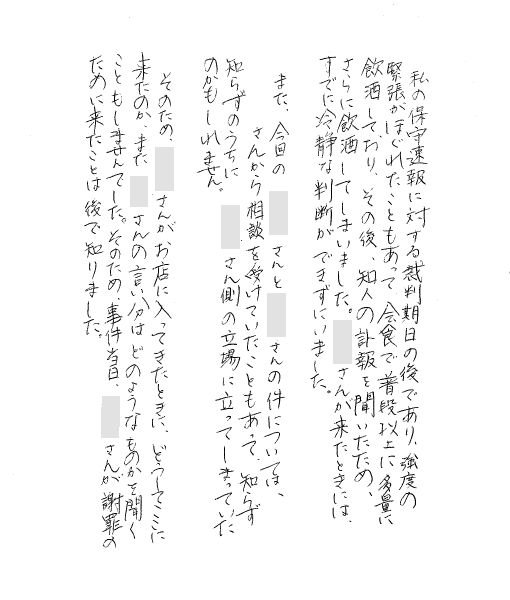 私の保守速報に対する裁判期日の後であり、強度の
緊張がほぐれたこともあって会食で普段以上に多量に
飲酒しており、その後、知人の訃報を聞いたため、
さらに飲酒してしまいました。さんが来たときには、
すでに冷静な判断ができずにいました。
また、今回のさんとさんの件については、
さんから相談を受けていたこともあって、知らず
知らずのうちにさん側の立場に立ってしまっていた
のかもしれません。
そのため、さんがお店に入ってきたときに、どうしてここに
来たのか、またさんの言い分はどのようなものかを聞く
こともしませんでした。そのため、事件当日、さんが謝罪の
ために来たことは後で知りました。